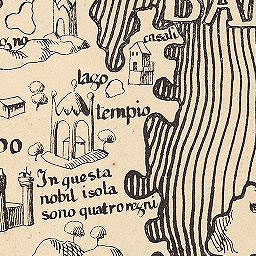 BA
casali
gno
lago
tempio
po
In questa
nobil isola
sono quatro regni